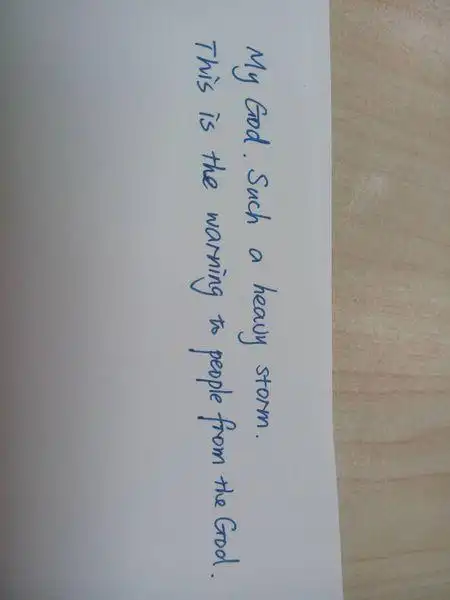 My God. Such a heavy storm.
This is the warning to people from the God.